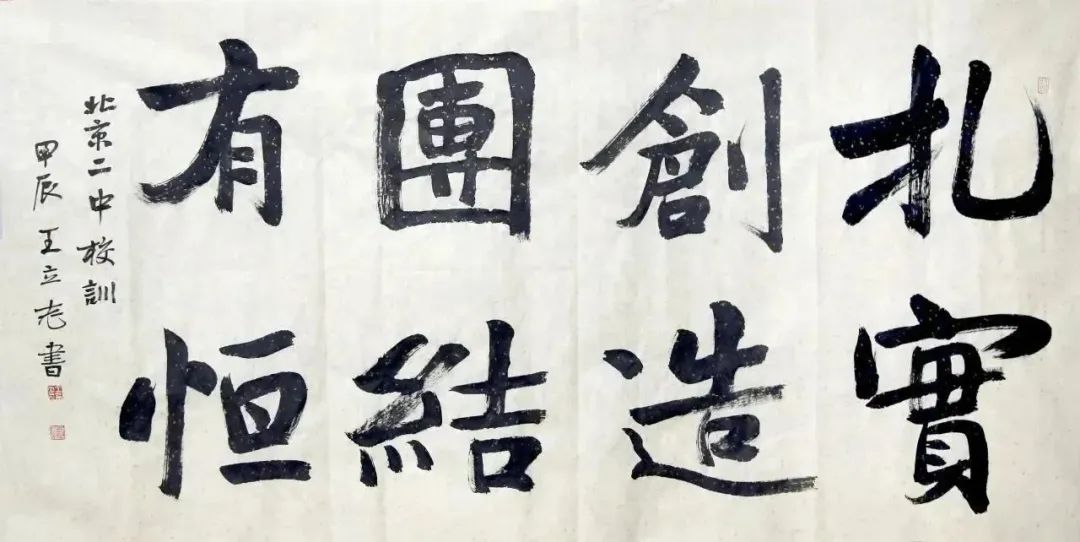 扎實
創造
團結
有恒
北京二中校訓
甲辰王立志書